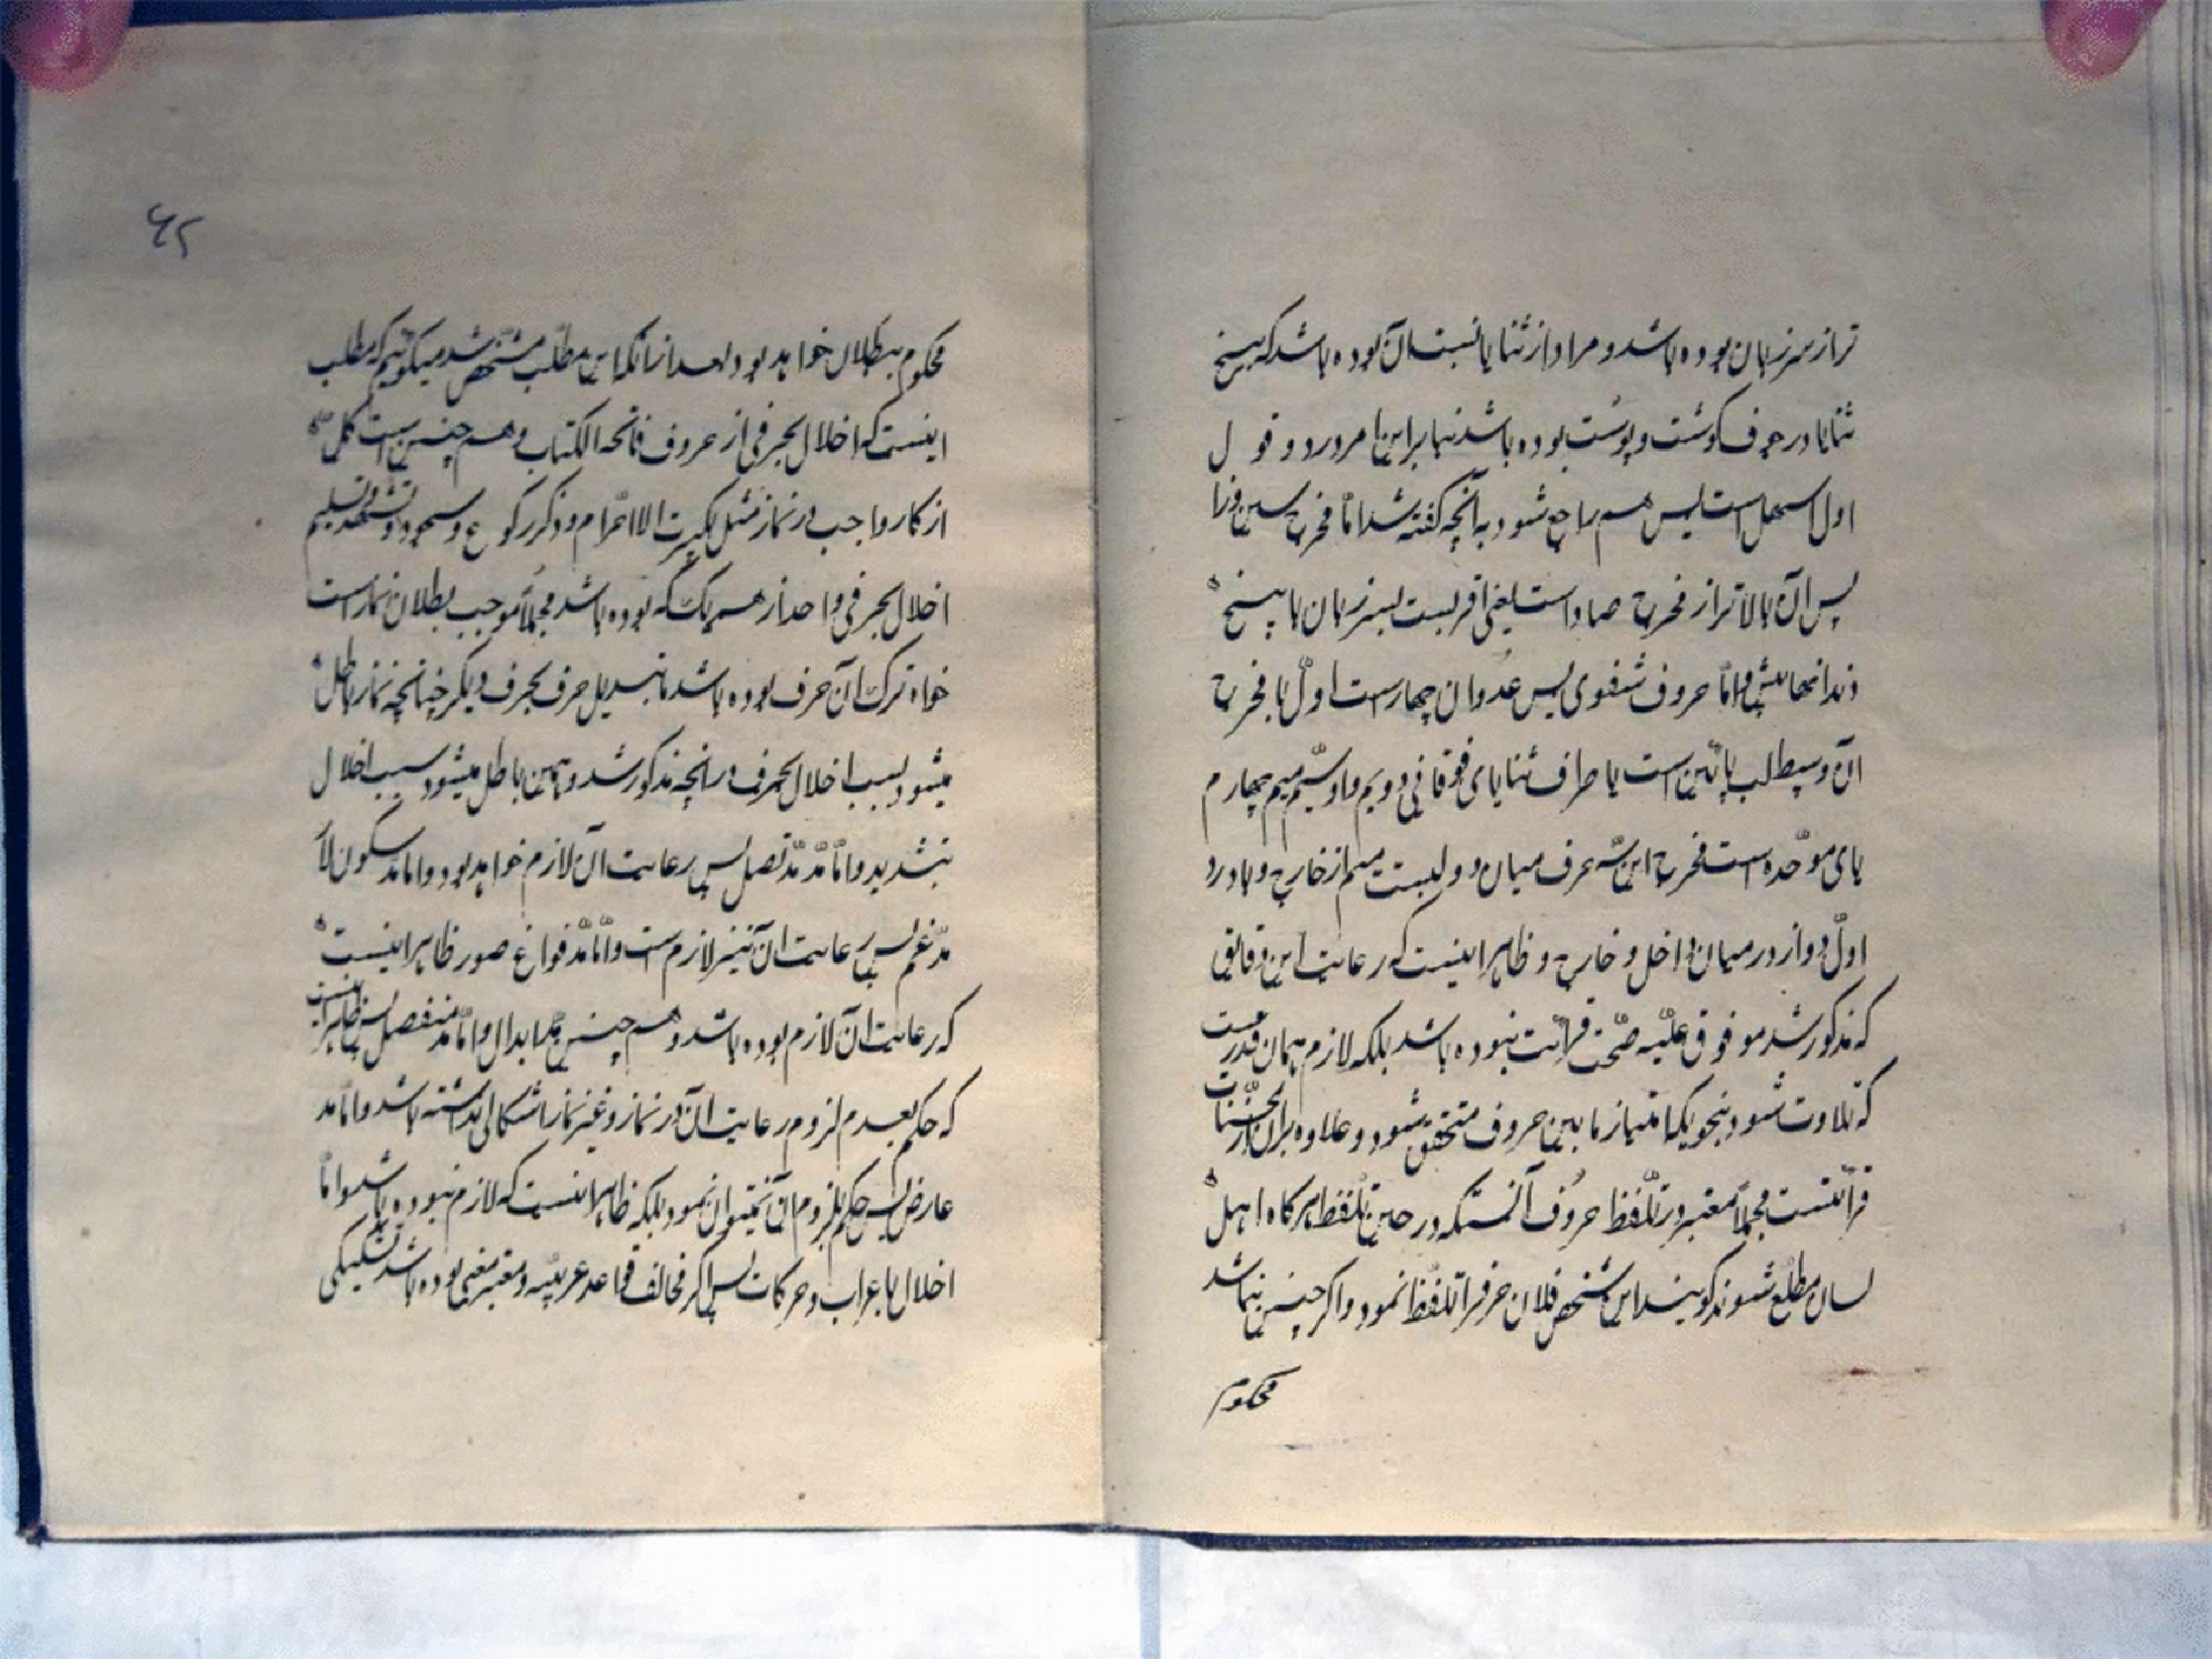 تر از سر زبان بوده باشد و مراد از ثنایا نسبت ان بوده باشد که بیخ
ثنایا در جوف کوشت و پوست بوده باشد بنابراین امر در دو قول
اول اسهل است پس هم راجع شود به آنچه گفته شد امّا مخرج سین و زا
پس ان بالاتر از مخرج صاد است یعنی اقربست بسر زبان با بیخ
دندانهای پیش و امّا حروف شفوی پس عدد ان چهار است اوّل فا مخرج
ان وسط لب پائین است با طراف ثنایای فوقانی دویم واو سیّم میم چهارم
بای موحّده است مخرج این سه حرف میان دو لبست میم از خارج و با در
اوّل و واو در میان داخل و خارج و ظاهر اینست که رعایت این دقایق
که مذکور شد موقوف علیه صحّت قرائت نبوده باشد بلکه لازم همان قدریست
که تلاوت شود بنحویکه امتیاز مابین حروف متحقّق شود و علاوه بر ان از محسّنات
قرائتست مجملاً معتبر در تلفّظ حروف آنستکه در حین تلفّظ هر کاه اهل
لسان مطلع شوند کویند این شخص فلان حرفرا تلفّظ نمود و اکر چنین نباشد
محکوم
۶۲
محکوم ببطلان خواهد بود بعد از انکه این مطلب مشخّص شد میکوئیم که مطلب
اینست که اخلال بحرفی از حروف فاتحه الکتاب و هم چنین است کل
اذکار واجب در نماز مثل تکبیرت الااحرام و ذکر رکوع و سجود و تشهد و تسلیم
اخلال بحرفی واحد از هر یک که بوده باشد مجملاً موجب بطلان نماز است
خواه ترک ان حرف بوده باشد یا تبدیل حرف بحرف دیکر چنانچه نماز باطل
میشود بسبب اخلال بحرف در آنچه مذکور شد و همچنین باطل میشود بسبب اخلال
بتشدید و امّا مدّ مدّ متصل پس رعایت ان لازم خواهد بود و اما مد سکون لا
مدغم پس رعایت ان نیز لازم است و امّا مدّ فواتح صور ظاهر اینست
که رعایت ان لازم بوده باشد و هم چنین مد ابدال و امّا مد منفصل پس ظاهر اینست
که حکم بعدم لزوم رعایت ان در نماز و غیر نماز اشکالی نداشته باشد و امّا مد
عارض پس حکم بلزوم ان نمیتوان نمود بلکه ظاهر اینست که لازم نبوده باشد و امّا
اخلال باعراب و حرکات پس اکر مخالف قواعد عربیّه و مغیر معنی بوده باشد تشکیکی